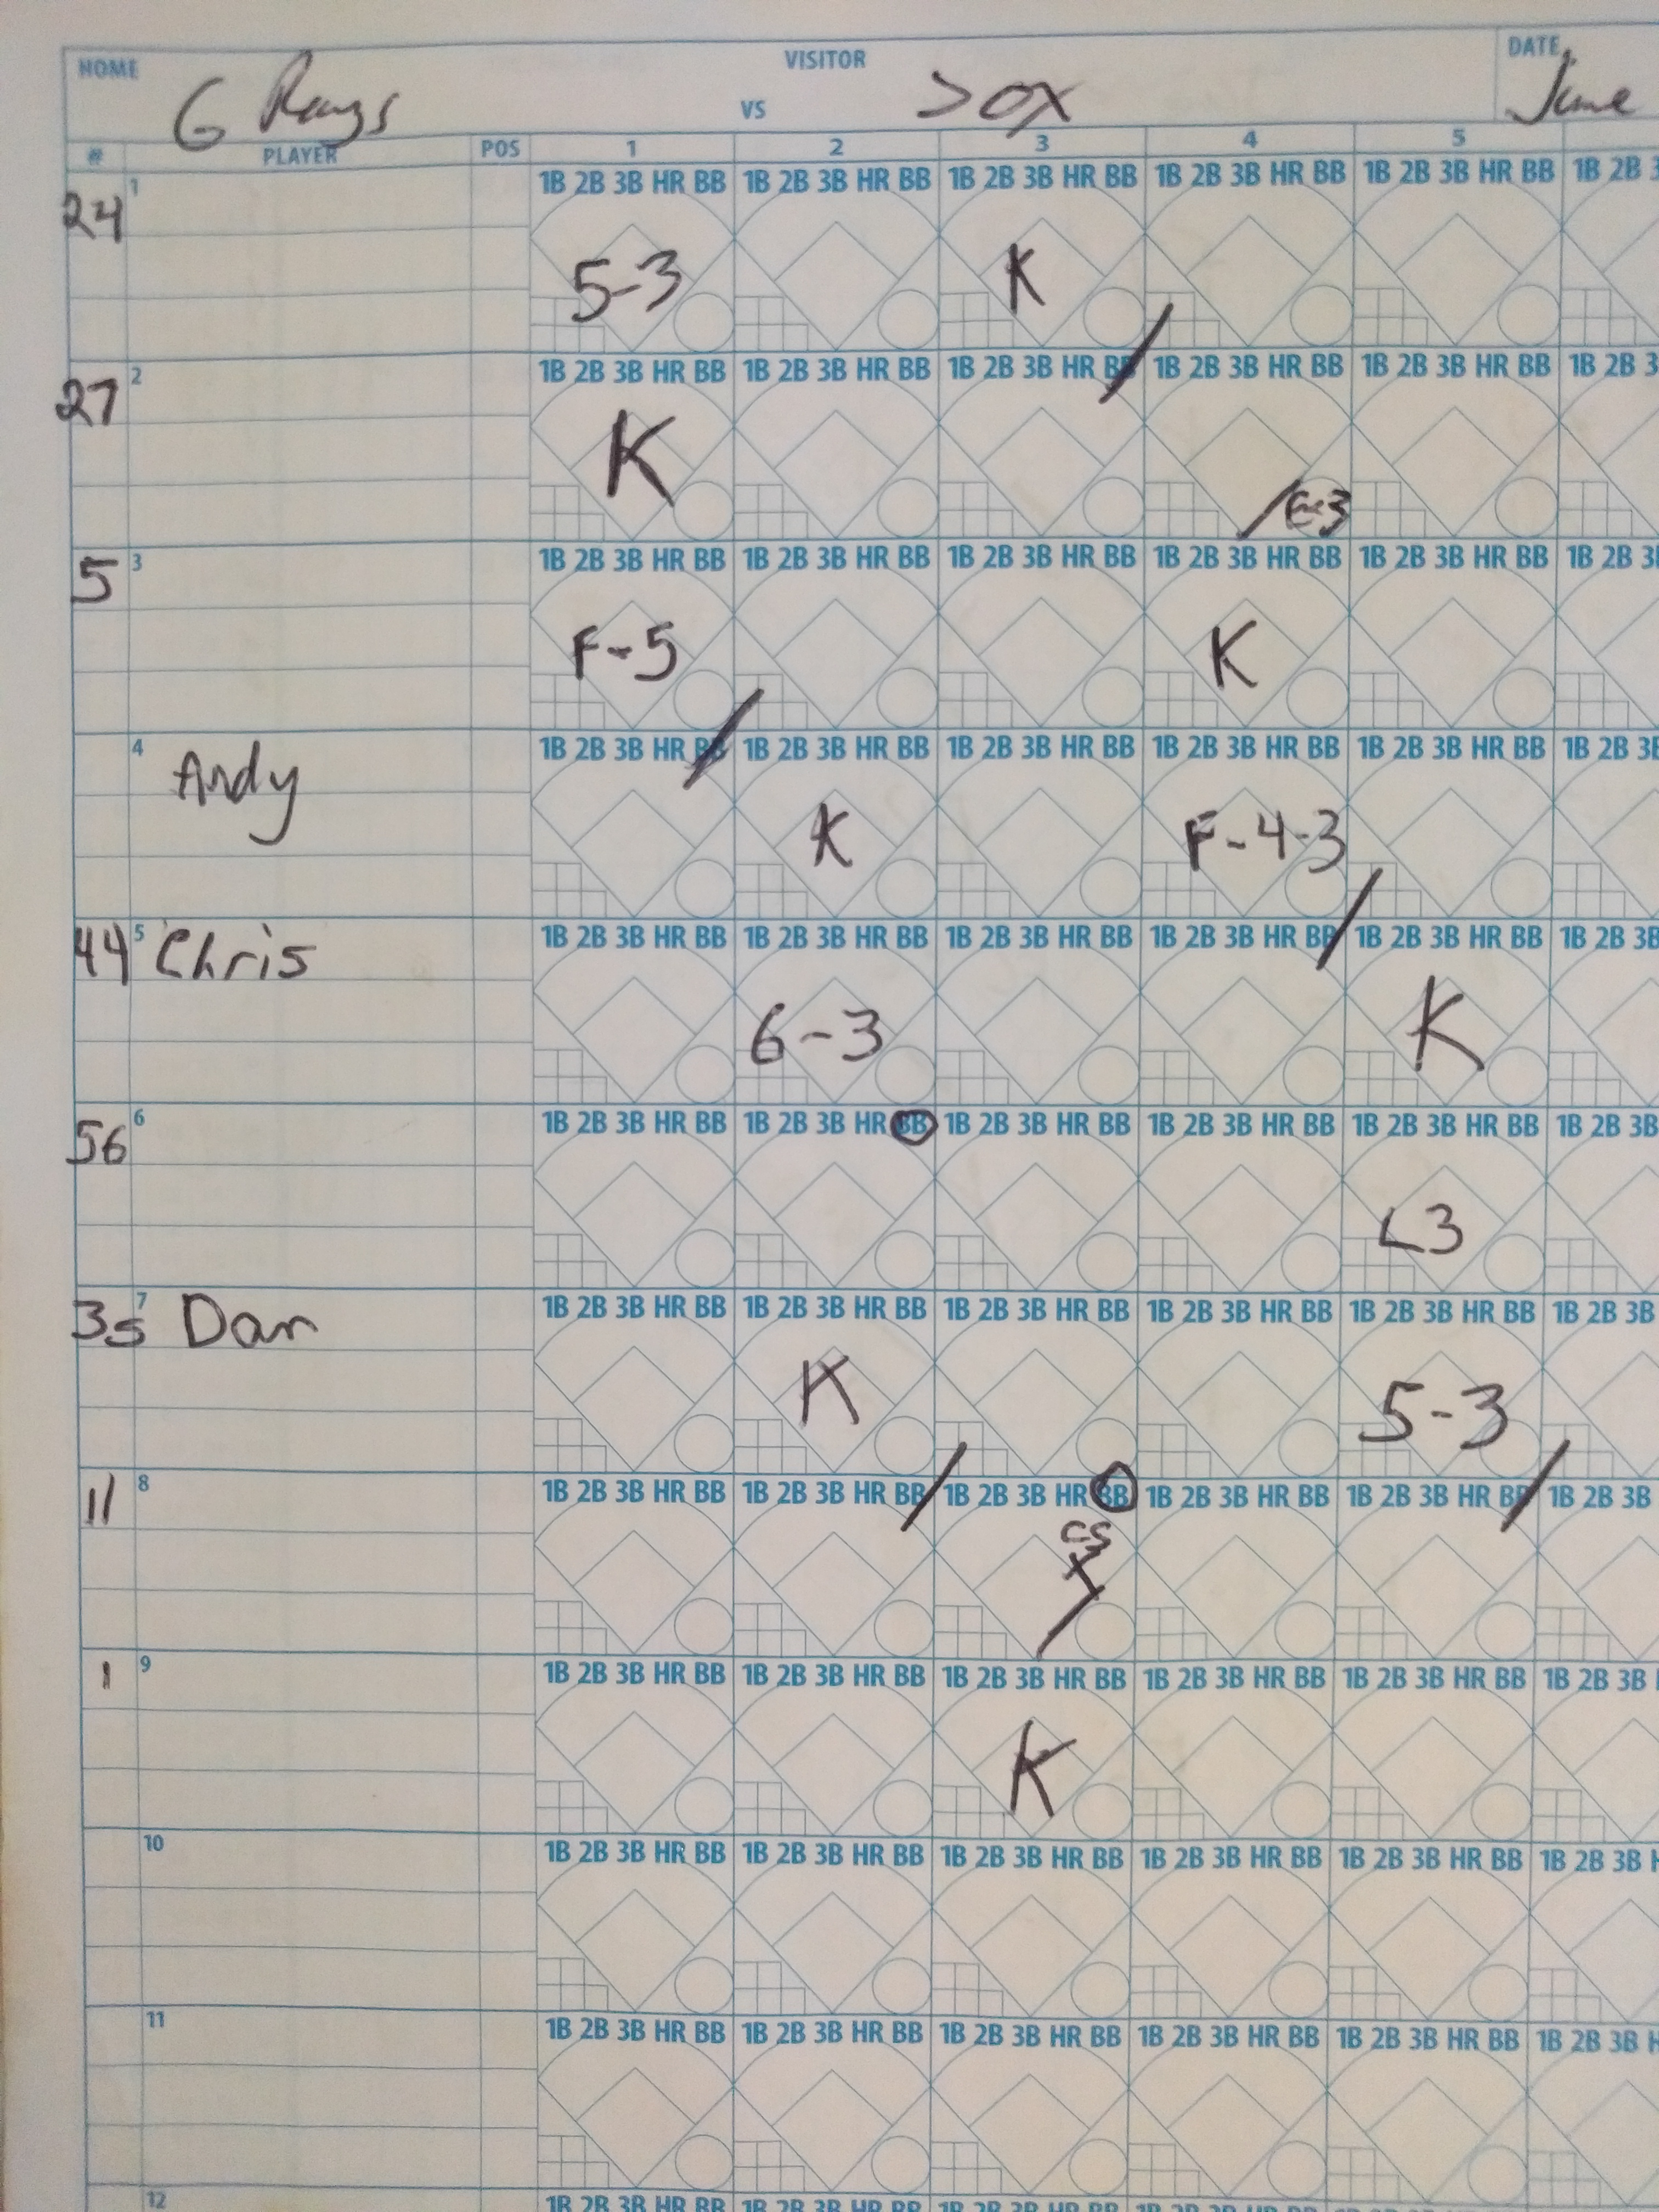 HOME VISITOR DATE
G Rays VS Sox June
# PLAYER POS 1 2 3 4 5
24 1 1B 2B 3B HR BB 1B 2B 3B HR BB 1B 2B 3B HR BB 1B 2B 3B HR BB 1B 2B 3B HR BB 1B 2B 3
5-3 K
27 2 1B 2B 3B HR BB 1B 2B 3B HR BB 1B 2B 3B HR BB 1B 2B 3B HR BB 1B 2B 3B HR BB 1B 2B 3
K E-3
5 3 1B 2B 3B HR BB 1B 2B 3B HR BB 1B 2B 3B HR BB 1B 2B 3B HR BB 1B 2B 3B HR BB 1B 2B 3B
F-5 K
4 Andy 1B 2B 3B HR BB 1B 2B 3B HR BB 1B 2B 3B HR BB 1B 2B 3B HR BB 1B 2B 3B HR BB 1B 2B 3B
K F-4-3
44 5 Chris 1B 2B 3B HR BB 1B 2B 3B HR BB 1B 2B 3B HR BB 1B 2B 3B HR BB 1B 2B 3B HR BB 1B 2B 3B
6-3 K
56 6 1B 2B 3B HR BB 1B 2B 3B HR BB 1B 2B 3B HR BB 1B 2B 3B HR BB 1B 2B 3B HR BB 1B 2B 3B
L3
35 7 Dan 1B 2B 3B HR BB 1B 2B 3B HR BB 1B 2B 3B HR BB 1B 2B 3B HR BB 1B 2B 3B HR BB 1B 2B 3B
K 5-3
11 8 1B 2B 3B HR BB 1B 2B 3B HR BB 1B 2B 3B HR BB 1B 2B 3B HR BB 1B 2B 3B HR BB 1B 2B 3B
CS
1 9 1B 2B 3B HR BB 1B 2B 3B HR BB 1B 2B 3B HR BB 1B 2B 3B HR BB 1B 2B 3B HR BB 1B 2B 3B
K
10 1B 2B 3B HR BB 1B 2B 3B HR BB 1B 2B 3B HR BB 1B 2B 3B HR BB 1B 2B 3B HR BB 1B 2B 3B H
11 1B 2B 3B HR BB 1B 2B 3B HR BB 1B 2B 3B HR BB 1B 2B 3B HR BB 1B 2B 3B HR BB 1B 2B 3B H
12 1B 2B 3B HR BB 1B 2B 3B HR BB 1B 2B 3B HR BB 1B 2B 3B HR BB 1B 2B 3B HR BB 1B 2B 3B